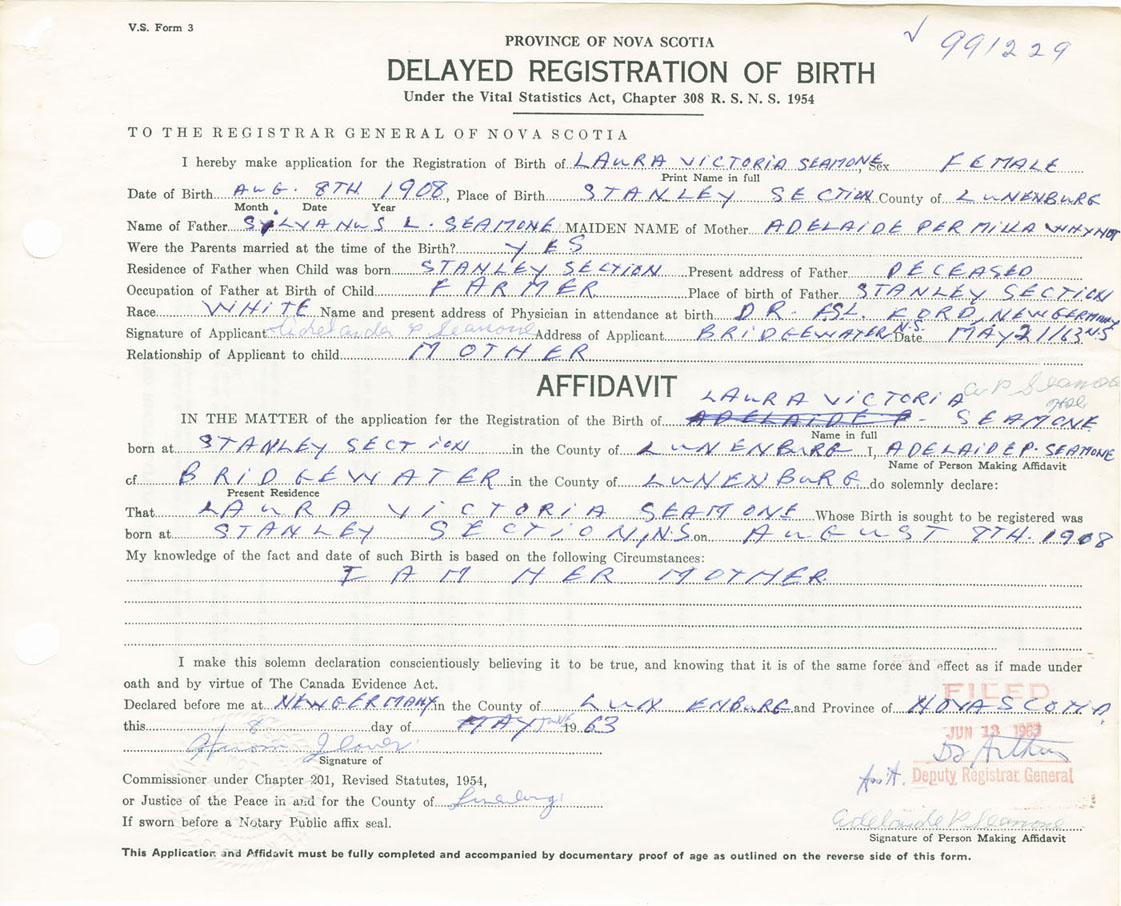 V.S. Form 3
√ 991229
PROVINCE OF NOVA SCOTIA
DELAYED REGISTRATION OF BIRTH
Under the Vital Statistics Act, Chapter 308 R. S. N. S. 1954
TO THE REGISTRAR GENERAL OF NOVA SCOTIA
I hereby make application for the Registration of Birth of LAURA VICTORIA SEAMONE, Sex FEMALE
Print Name in full
Date of Birth AUG. 8TH 1908, Place of Birth STANLEY SECTION County of LUNENBURG
Month Date Year
Name of Father SYLVANUS L. SEAMONE MAIDEN NAME of Mother ADELAIDE PERMILLA WHYNOT
Were the Parents married at the time of the Birth? YES
Residence of Father when Child was born STANLEY SECTION Present address of Father DECEASED
Occupation of Father at Birth of Child FARMER Place of birth of Father STANLEY SECTION
Race WHITE Name and present address of Physician in attendance at birth DR. FORD, NEW GERMANY
Signature of Applicant P Seamone Address of Applicant BRIDGEWATER N.S. Date MAY 21/63 N.S
Relationship of Applicant to child MOTHER
AFFIDAVIT
LAURA VICTORIA A P Seamone
IN THE MATTER of the application for the Registration of the Birth of ADELAIDE P. SEAMONE
Name in full
born at STANLEY SECTION in the County of LUNENBURG I, ADELAIDE P. SEAMONE
Name of Person Making Affidavit
of BRIDGEWATER in the County of LUNENBURG do solemnly declare:
Present Residence
That LAURA VICTORIA SEAMONE Whose Birth is sought to be registered was
born at STANLEY SECTION, N.S on AUGUST 8TH. 1908
My knowledge of the fact and date of such Birth is based on the following Circumstances:
I AM HER MOTHER.
I make this solemn declaration conscientiously believing it to be true, and knowing that it is of the same force and effect as if made under
oath and by virtue of The Canada Evidence Act.
FILED
Declared before me at NEW GERMANY in the County of LUNENBURG and Province of NOVA SCOTIA.
this 8 day of MAY June 1963
JUN 13 1963
Signature of
Deputy Registrar General
Commissioner under Chapter 201, Revised Statutes, 1954,
or Justice of the Peace in and for the County of Lunenburg
If sworn before a Notary Public affix seal.
Adelaide P Seamone
Signature of Person Making Affidavit
This Application and Affidavit must be fully completed and accompanied by documentary proof of age as outlined on the reverse side of this form.